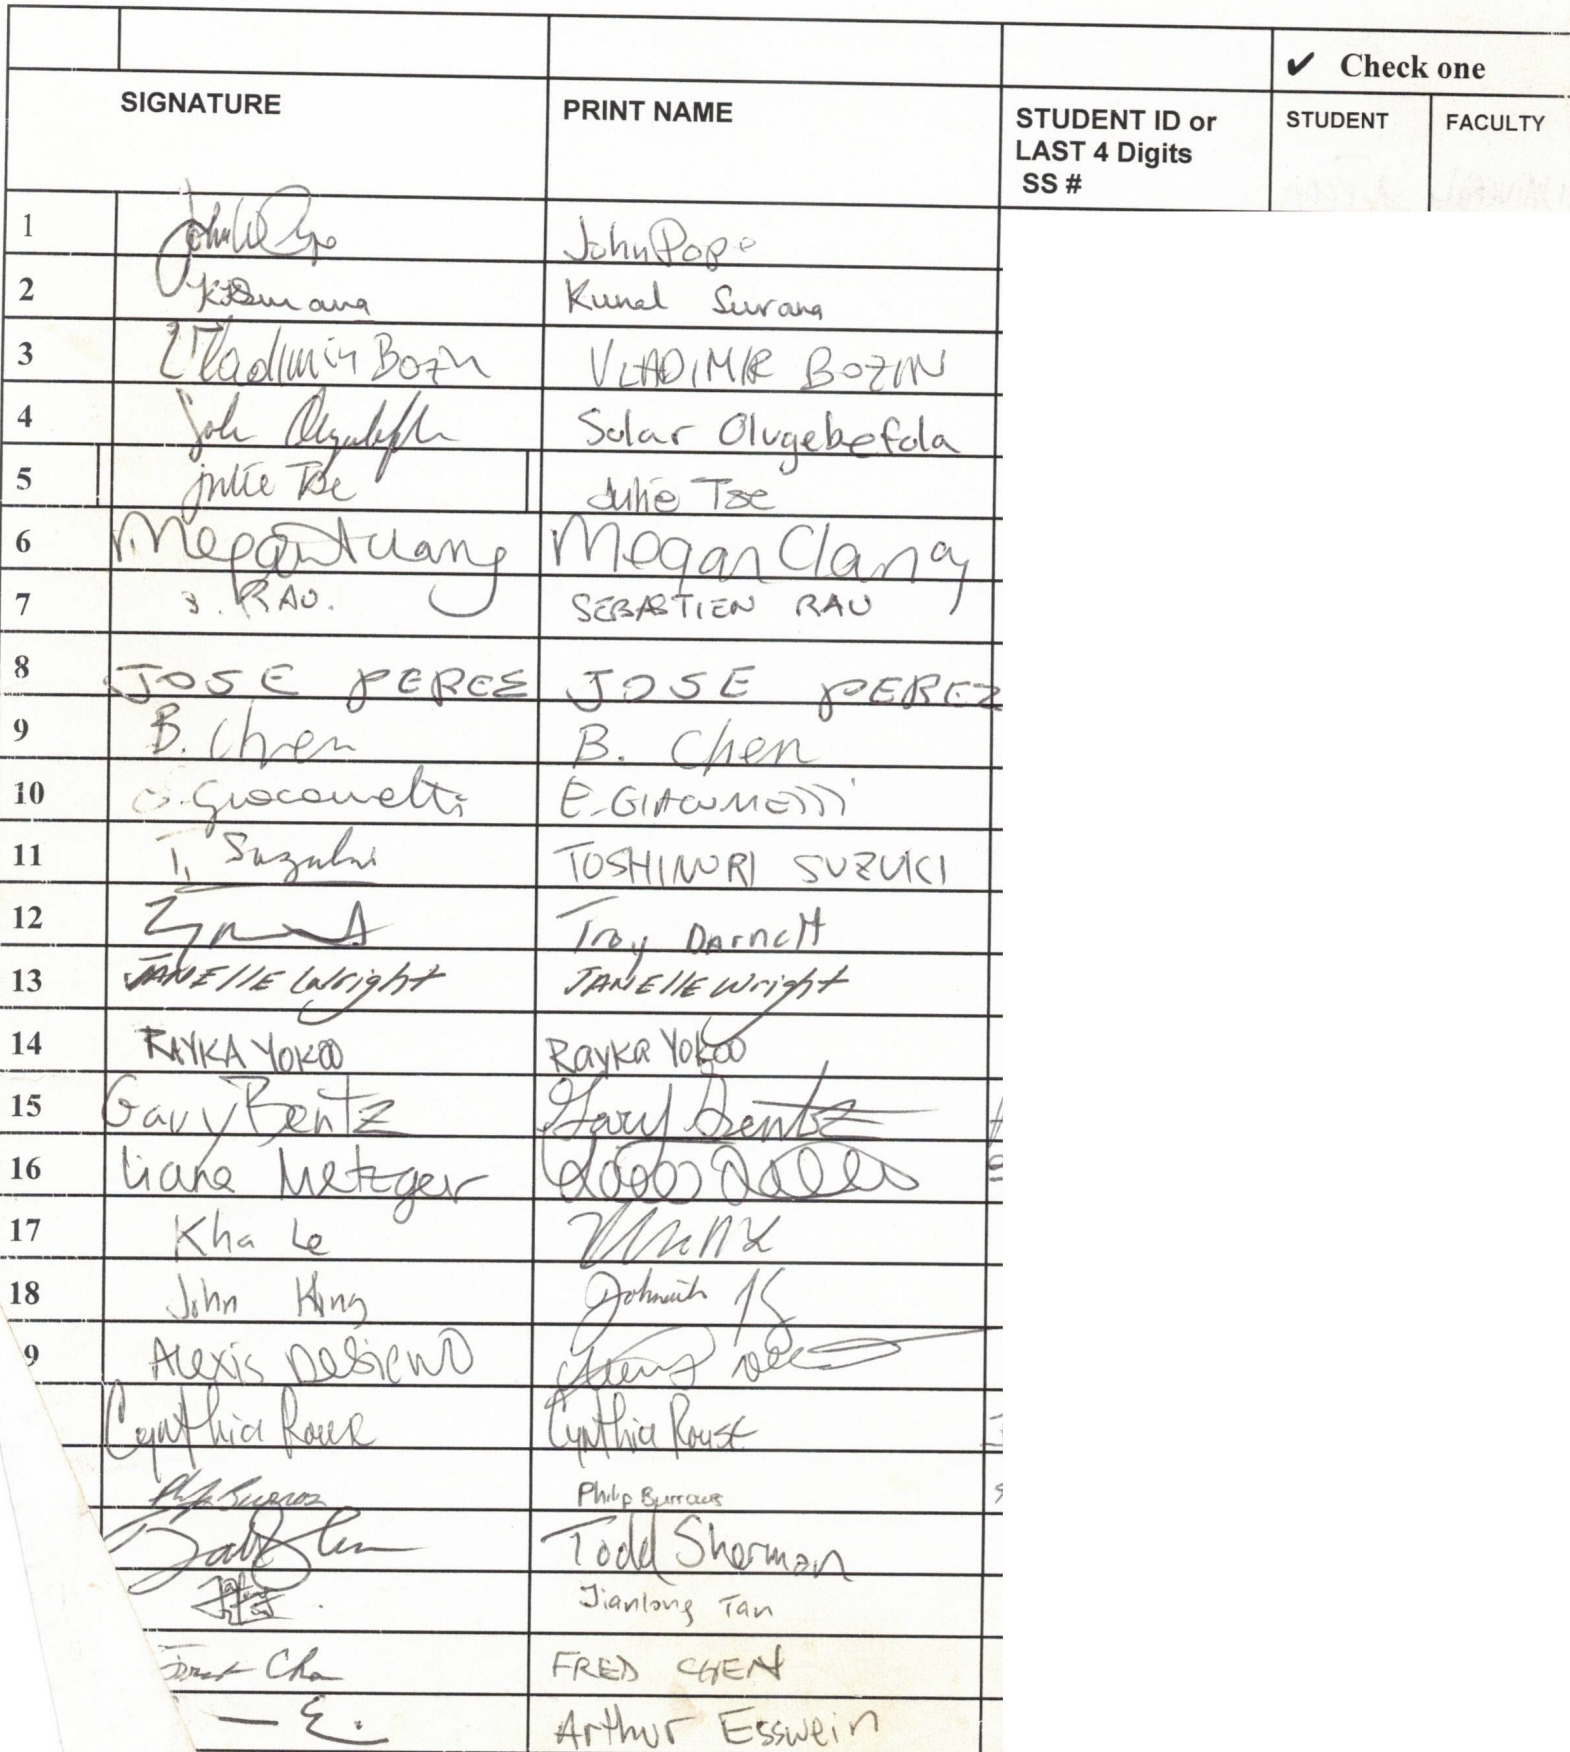 ✔ Check one
SIGNATURE PRINT NAME STUDENT ID or LAST 4 Digits SS # STUDENT FACULTY
1 John Pope
2 Kunal Surana
3 Vladimir Bozin VLADIMIR BOZIN
4 Solar Olugebefola
5 julie Tse Julie Tse
6 Megan Megan Clancy
7 S. RAU. SEBASTIEN RAU
8 JOSE PEREZ JOSE PEREZ
9 B. Chen B. Chen
10 E. GIACOMETTI
11 T. Suzuki TOSHINORI SUZUKI
12 Troy Darnell
13 JANEllE Wright JANEllE Wright
14 RAYKA YOKOO RAYKA YOKOO
15 Gary Bentz Gary Bentz
16 Liana Metzger
17 Kha Le
18 John King
9 Alexis
Cynthia Cynthia Roust
Philip Burrows
Todd Sherman
Jianlong Tan
FRED CHEN
Arthur Esswein